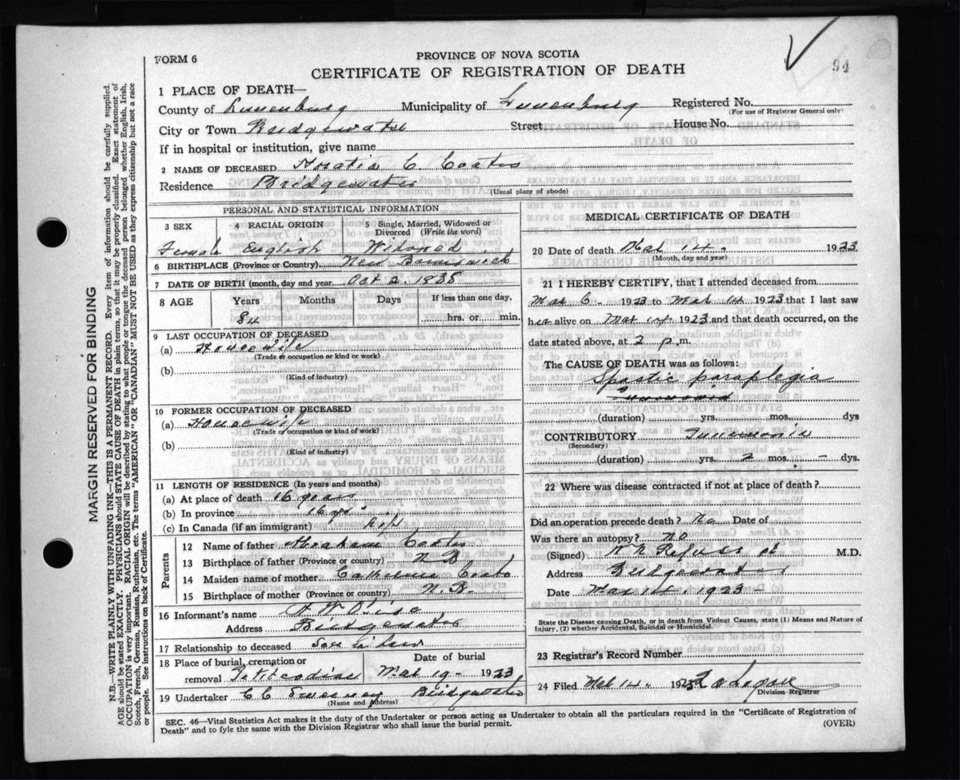 94
FORM 6
PROVINCE OF NOVA SCOTIA
CERTIFICATE OF REGISTRATION OF DEATH
1 PLACE OF DEATH—
County of Lunenburg Municipality of Lunenburg Registered No.
(For use of Registrar General only)
City or Town Bridgewater Street House No.
If in hospital or institution, give name
2 NAME OF DECEASED Horatia C. Coates
Residence Bridgewater
(Usual place of abode)
PERSONAL AND STATISTICAL INFORMATION
3 SEX 4 RACIAL ORIGIN Single, Married, Widowed or Divorced (Write the word)
Female English Widowed
6 BIRTHPLACE (Province or Country) New Brunswick
7 DATE OF BIRTH (month, day and year) Oct 2. 1838
8 AGE Years Months Days If less than one day,
84 hrs. or min.
9 LAST OCCUPATION OF DECEASED
(a) Housewife
(Trade or occupation or kind or work)
(b)
(Kind of industry)
10 FORMER OCCUPATION OF DECEASED
(a) Housewife
(Trade or occupation or kind or work)
(b)
(Kind of industry)
11 LENGTH OF RESIDENCE (In years and months)
(a) At place of death 16 years
(b) In province 16 yrs
(c) In Canada (if an immigrant) life
Parents
12 Name of father Abraham Coates
13 Birthplace of father (Province or country) N B
14 Maiden name of mother Catherine
15 Birthplace of mother (Province or country) N. B.
16 Informant's name
Address Bridgewater
17 Relationship to deceased Son in law
18 Place of burial, cremation or removal Petitcodiac Date of burial Mar 19 - 1923
19 Undertaker C C Sweeney Bridgewater
(Name and Address)
MEDICAL CERTIFICATE OF DEATH
20 Date of death Mar 14. 1923
(Month, day and year)
21 I HEREBY CERTIFY, that I attended deceased from
Mar 6. 1923 to Mar 14 1923 that I last saw
her alive on Mar 14 1923 and that death occurred, on the
date stated above, at 2 p.m.
The CAUSE OF DEATH was as follows:
Spastic paraplegia
(duration) yrs. mos. dys
CONTRIBUTORY
(Secondary)
(duration) yrs. 2 mos. - dys.
22 Where was disease contracted if not at place of death?
Did an operation precede death? No Date of
Was there an autopsy? No
(Signed) M.D.
Address Bridgewater
Date Mar 14. 1923
State the Disease causing Death, or in death from Violent Causes, state (1) Means and Nature of Injury, (2) whether Accidental, Suicidal or Homicidal.
23 Registrar's Record Number
24 Filed Mar 14. 1923 Logan
Division Registrar
SEC. 46—Vital Statistics Act makes it the duty of the Undertaker or person acting as Undertaker to obtain all the particulars required in the "Certificate of Registration of
Death" and to fyle the same with the Division Registrar who shall issue the burial permit. (OVER)
MARGIN RESERVED FOR BINDING
N.B.—WRITE PLAINLY WITH UNFADING INK—THIS IS A PERMANENT RECORD. Every item of information should be carefully supplied.
AGE should be stated EXACTLY. PHYSICIANS should STATE CAUSE OF DEATH in plain terms, so that it may be properly classified. Exact statement of
OCCUPATION is very important. RACIAL ORIGIN will be described by stating to what people or tongue the deceased person belonged whether English, Irish,
Scotch, French, German, Russian, Ruthenian, etc. The terms "AMERICAN" OR "CANADIAN" MUST NOT BE USED as they express citizenship but not a race
or people. See instructions on back of Certificate.